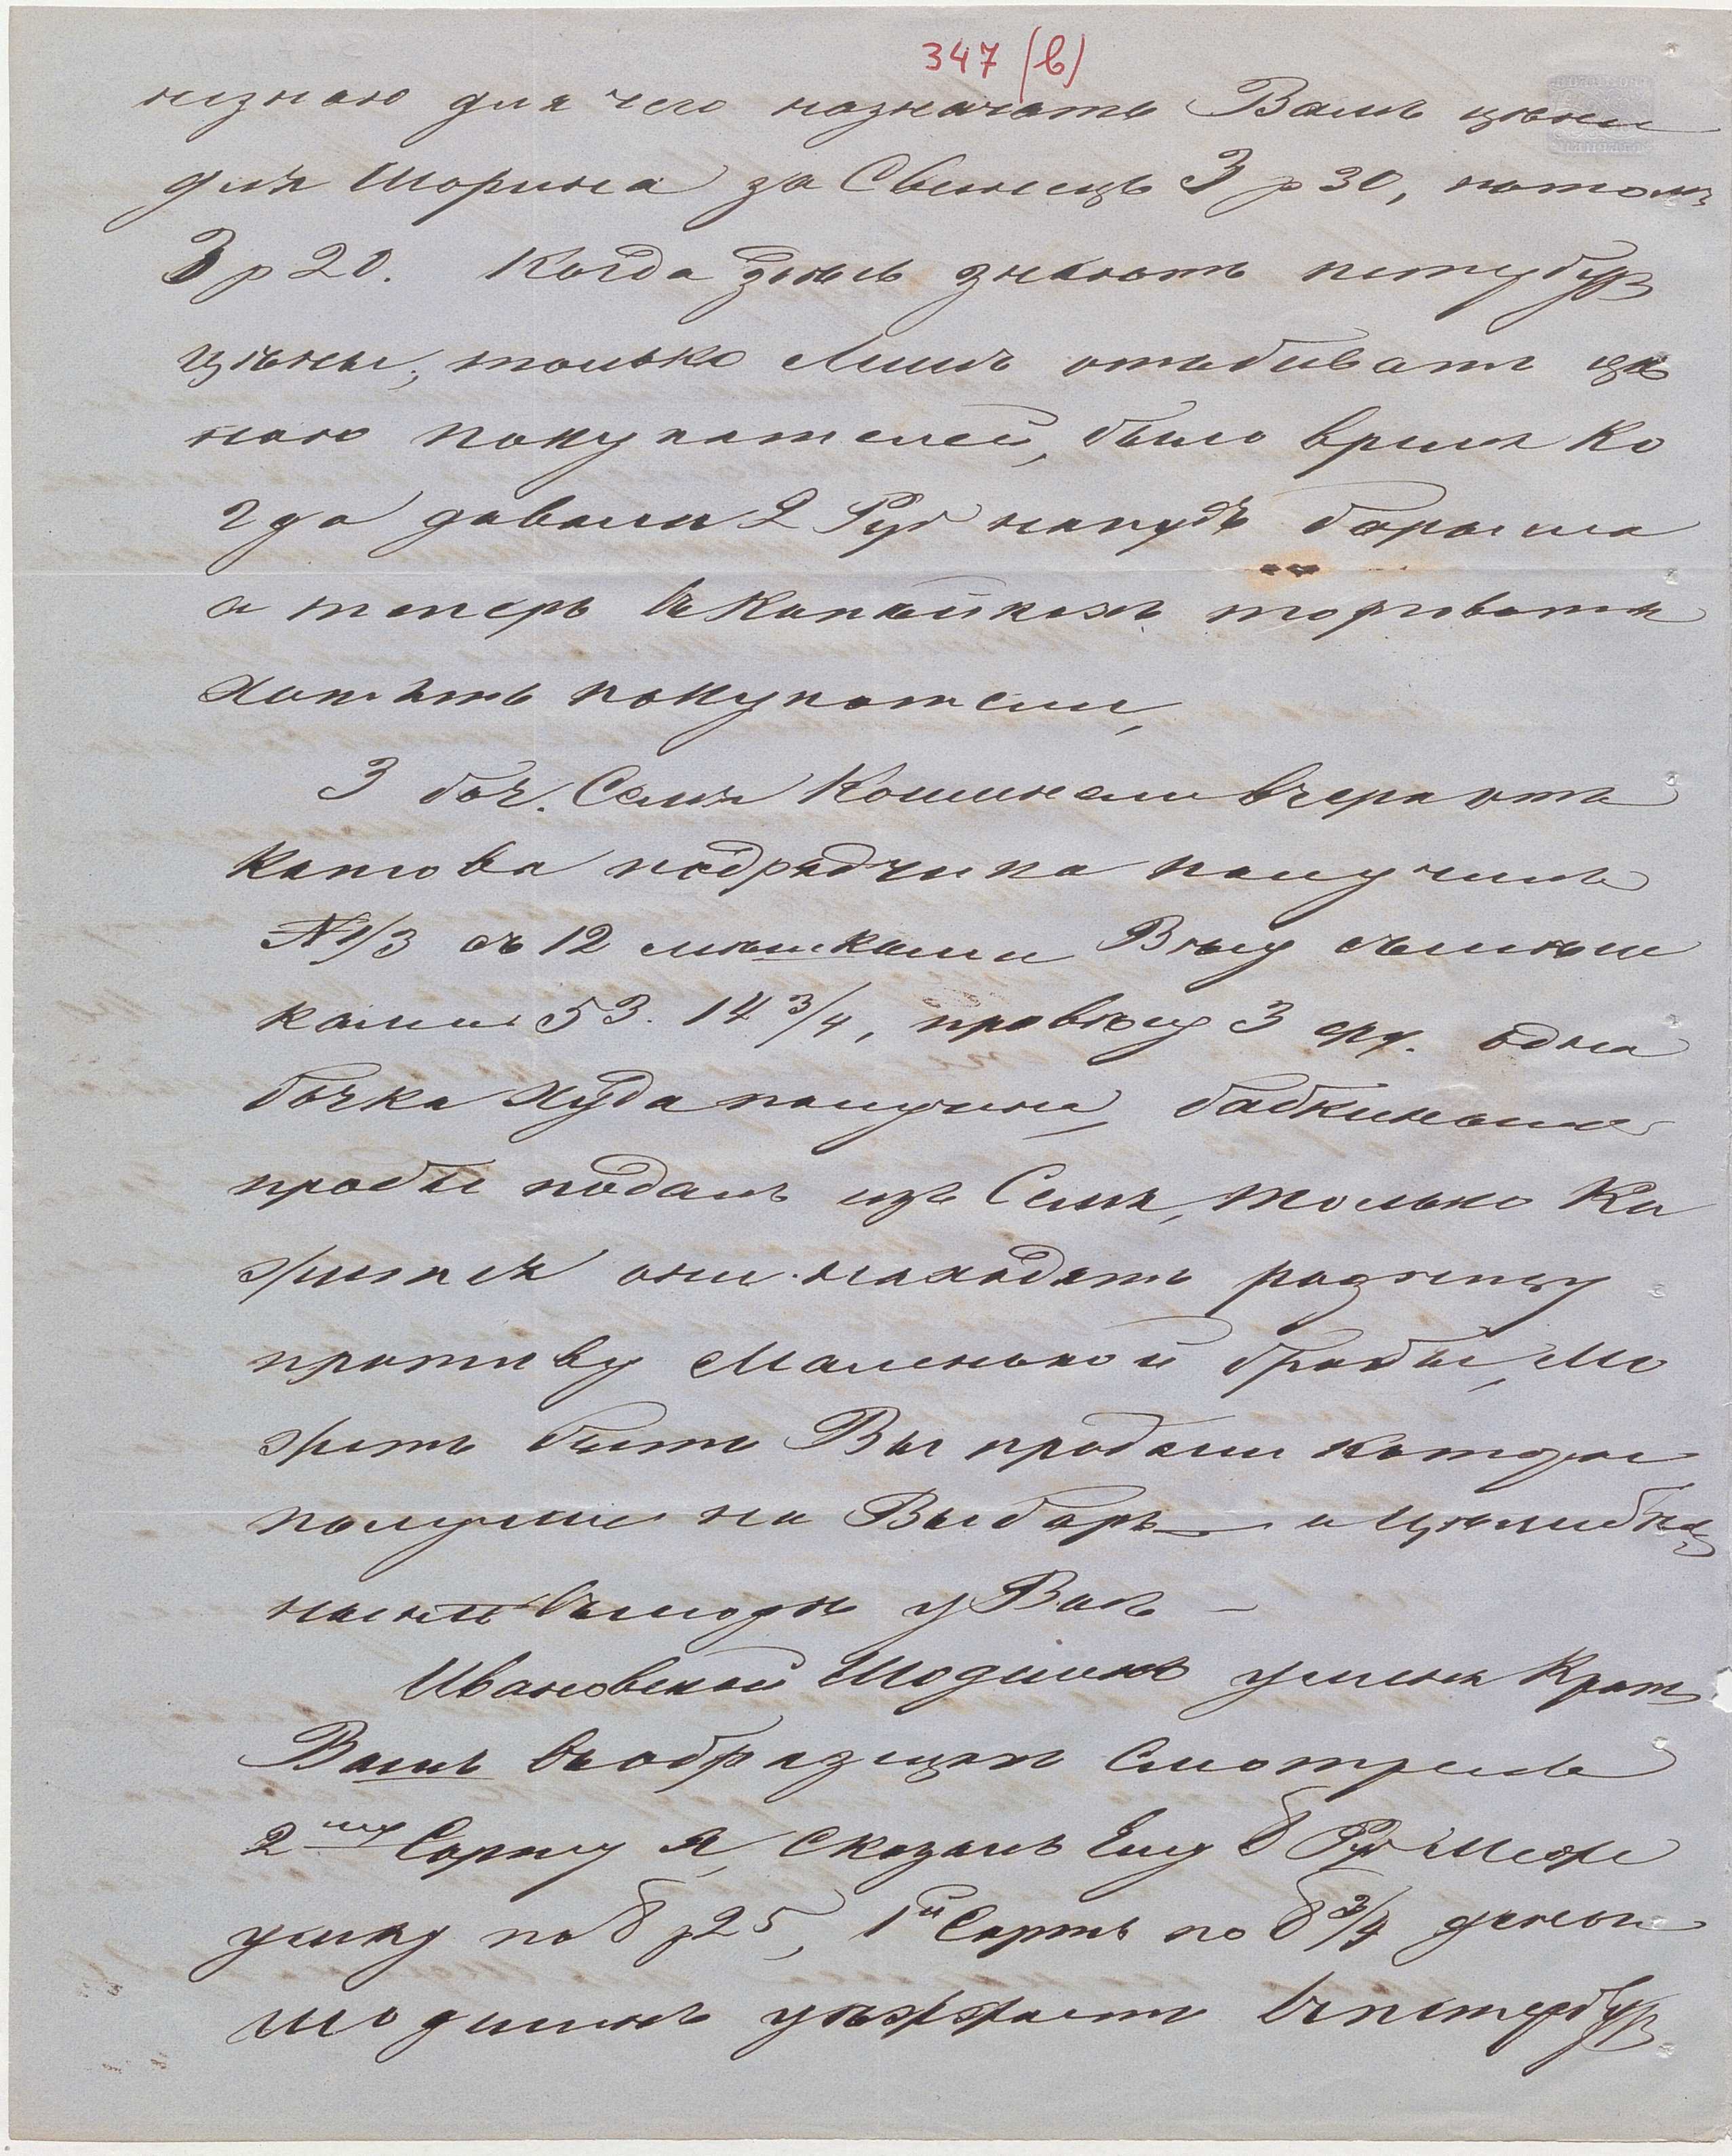 347 (в)
незнаю для чего назначать Вамъ цѣны
для Шорина за Свенецъ 3 р 30, потомъ
3 р 20. Когда здѣсь знаютъ петербур
цѣны, только лишь отъбиваетъ цѣ
ною покупателей, было время ко
гда давали 2 Руб напудъ барыша
а теперь въ Копѣйкахъ торговатся
хотятъ покупатели,
3 боч. Семя Кошинели вчера отъ
Катова подрядчика получилъ
№ 1/3 съ 12 мѣшками Вѣсу съмѣш
ками 53. 14 3/4, провозу 3 ру. одна
бочка худа получена, бабкинымъ
пробы подалъ изъ Семя, только Ка
жится они находятъ разницу
противу Маленькой пробы, Мо
жетъ быть Вы продали которые
получше на Выборъ и
у Васъ —
Ивановской Шодчинъ уменя Крат
Вашъ въобразцахъ Смотрелъ
2му Сорту я сказалъ Ему 8 Руб Меж
уимку по 8 р 25, 1й Сортъ по 8 3/4 деньги
шодчинъ уѣзжаетъ въпетербур